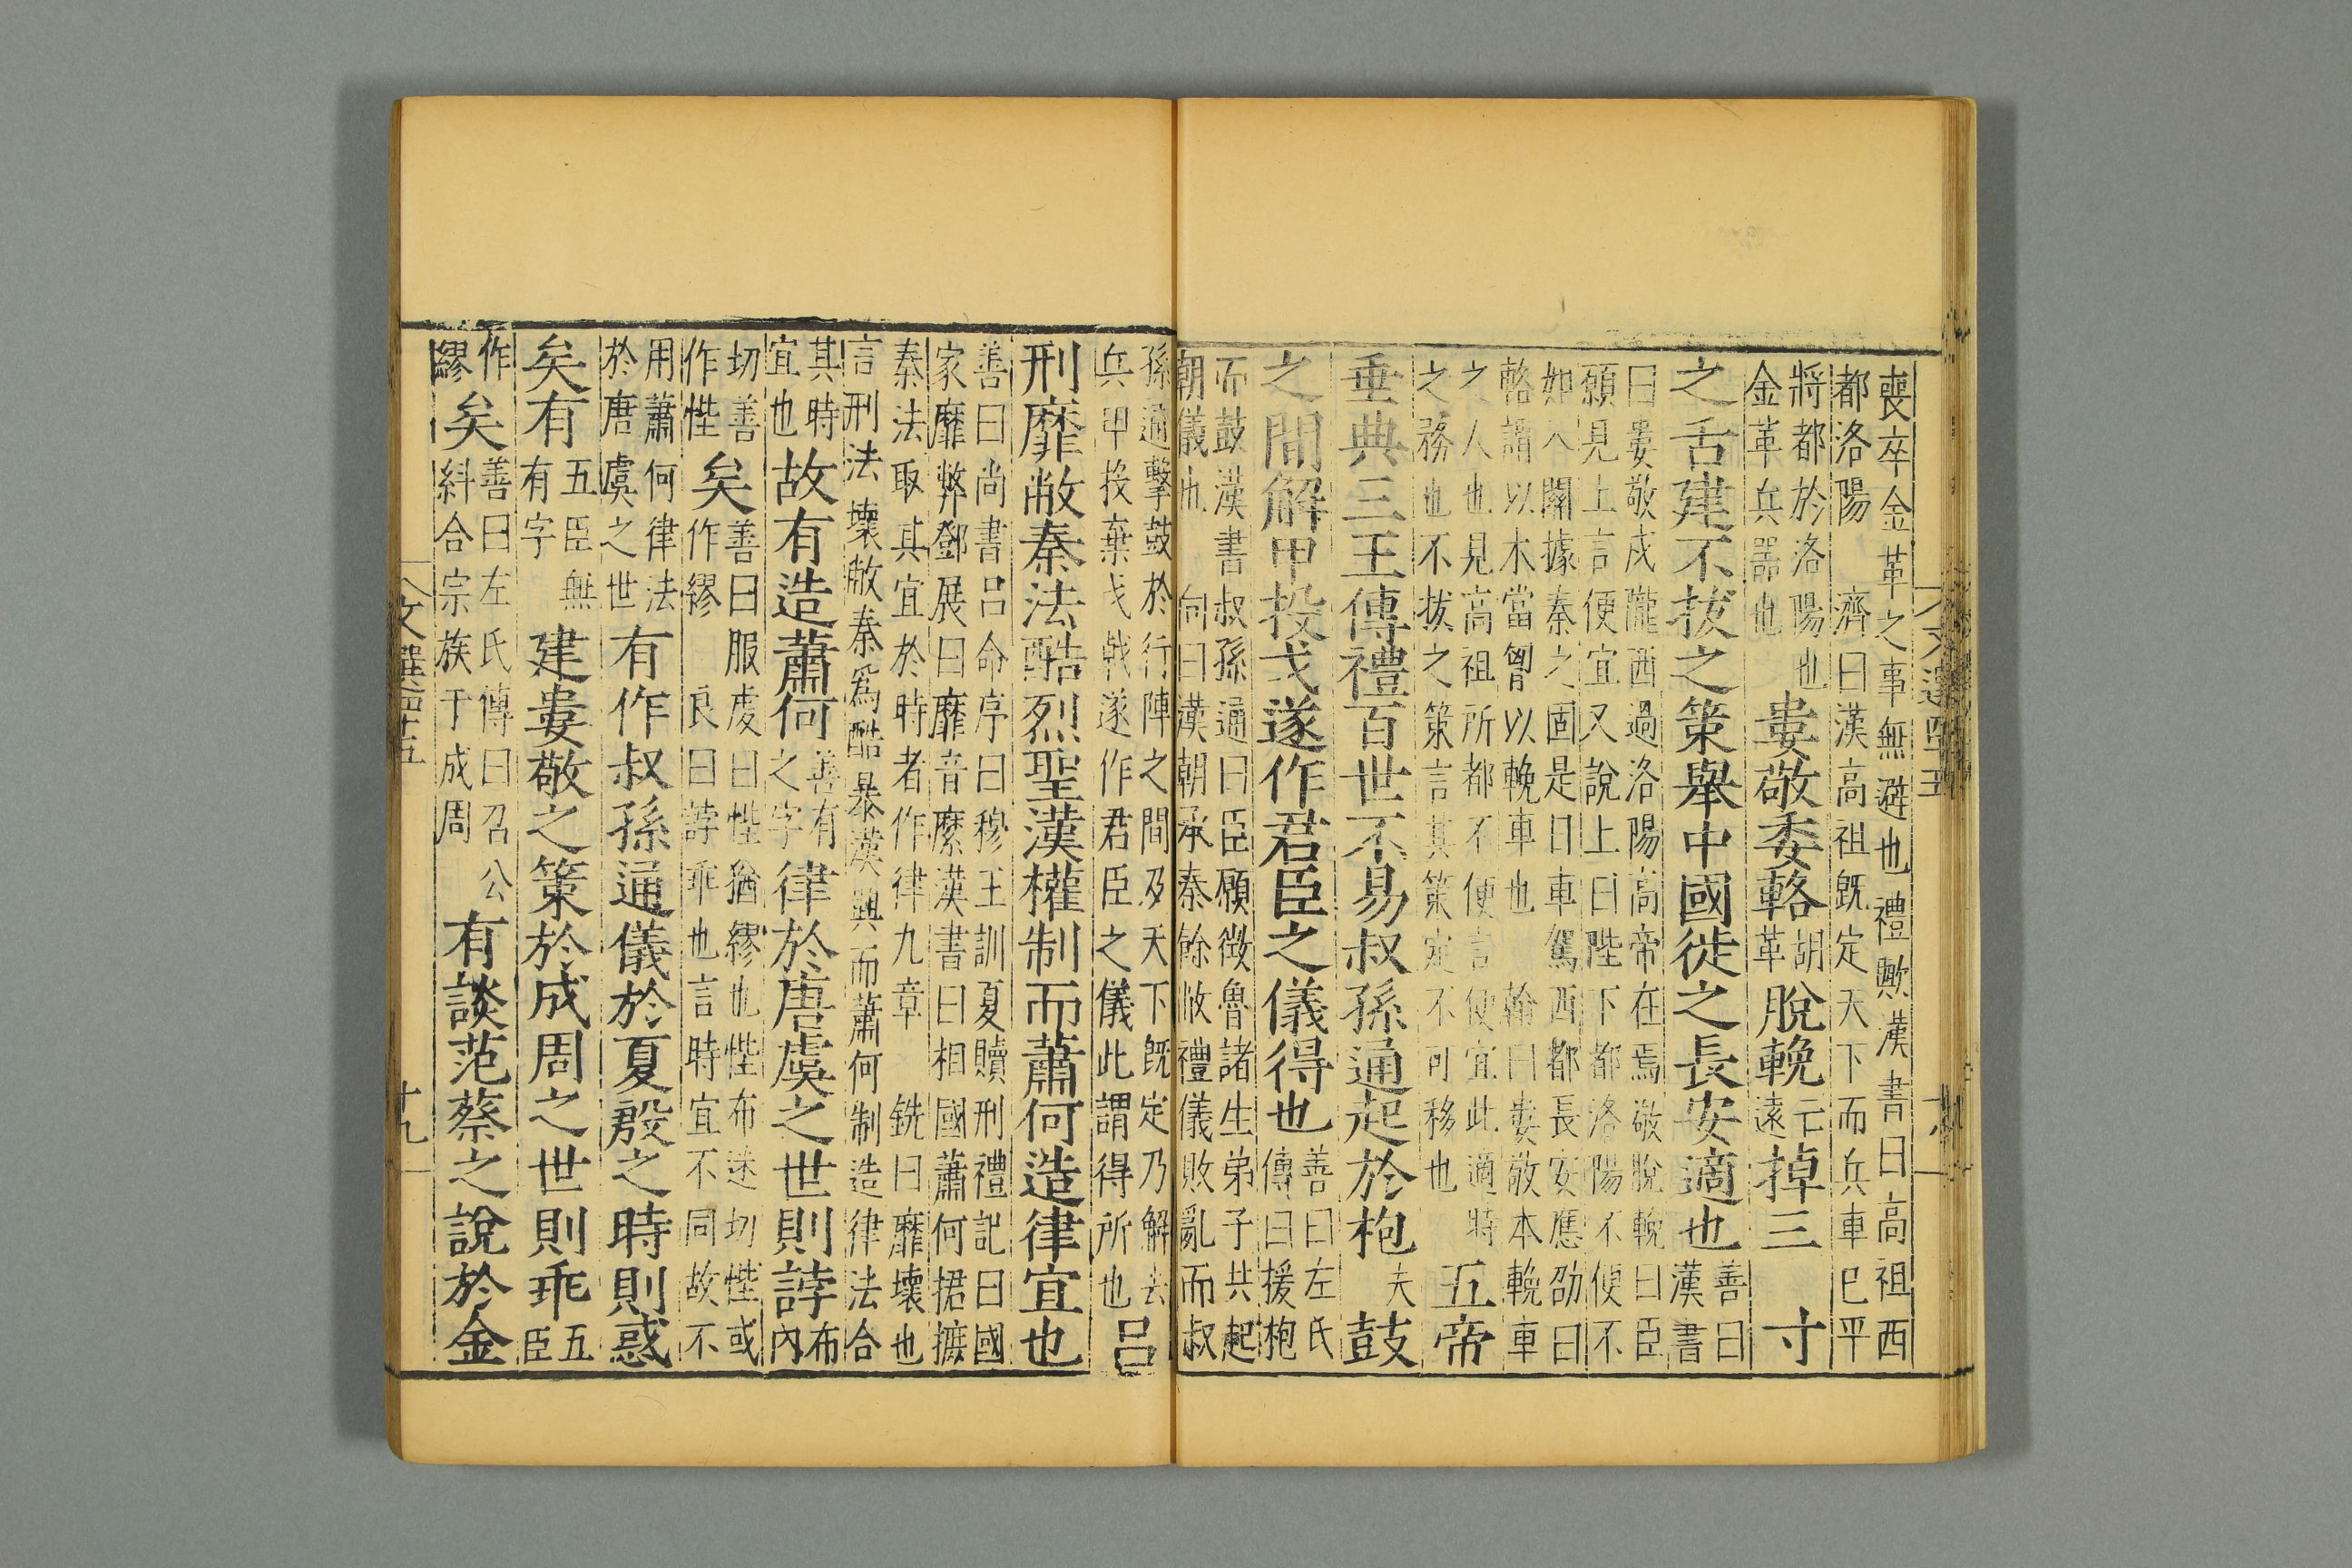 喪卒金革之事無避也禮歟漢書曰高祖西
都洛陽 濟曰漢高祖既定天下而兵車已平
將都於洛陽也
金革兵器也
婁敬委輅
胡
革
脫輓
亡
遠
掉三寸
之舌建不拔之策舉中國徙之長安適也
善曰
漢書
曰婁敬戍隴西過洛陽高帝在焉敬脫輓曰臣
願見上言便宜又說上曰陛下都洛陽不便不
如入關據秦之固是日車駕西都長安應劭曰
輅謂以木當胷以輓車也 翰曰婁敬本輓車
之人也見高祖所都不便言便宜此適時
之務也不拔之策言其策定不可移也
五帝
垂典三王傳禮百世不易叔孫通起於枹
夫
鼓
之間解甲投戈遂作君臣之儀得也
善曰左氏
傳曰援枹
而鼓漢書叔孫通曰臣願徵魯諸生弟子共起
朝儀也 向曰漢朝承秦餘敝禮儀敗亂而叔
孫通擊鼓於行陣之間及天下既定乃解去
兵甲投棄戈戟遂作君臣之儀此謂得所也
呂
刑靡敝秦法酷烈聖漢權制而蕭何造律宜也
善曰尚書呂命序曰穆王訓夏贖刑禮記曰國
家靡弊鄧展曰靡音縻漢書曰相國蕭何捃摭
秦法取其宜於時者作律九章 銑曰靡壞也
言刑法壞敝秦爲酷暴漢興而蕭何制造律法合
其時
宜也
故有造蕭何
善有
之字
律於唐虞之世則誖
布
內
切善曰服虔曰悂猶繆也悂布迷切悂或
作悂
矣
作繆 良曰誖乖也言時宜不同故不
用蕭何律法
於唐虞之世
有作叔孫通儀於夏殷之時則惑
矣有
五臣無
有字
建婁敬之策於成周之世則乖
五
臣
作
繆
矣
善曰左氏傳曰召公
糾合宗族于成周
有談范蔡之說於金
文選四十五
十八
文選四十五
十九